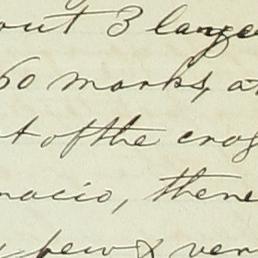 out 3 large
60 marks, a
t of the crop
nacio, there
few & ver